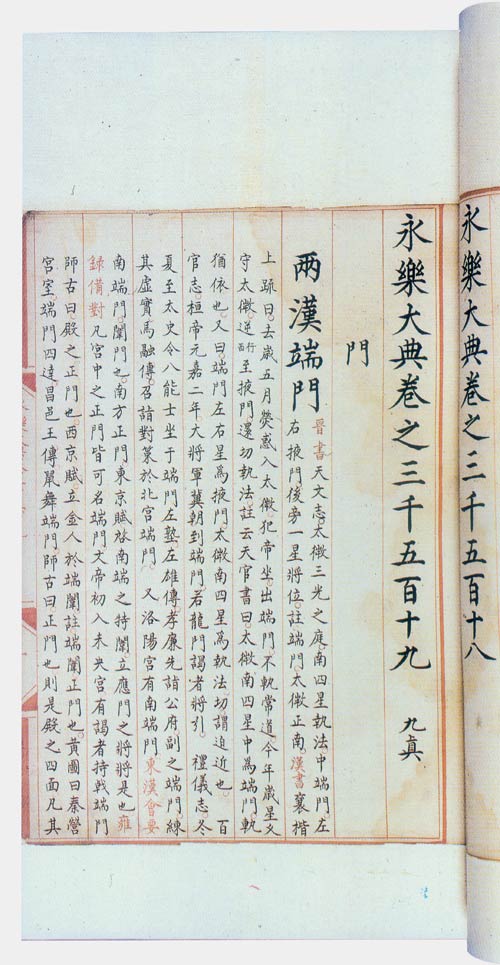 永樂大典卷之三千五百十八
永樂大典卷之三千五百十九 九真
門
兩漢端門
晉書天文志。太微三光之庭。南四星執法中端門。左
右掖門後旁一星將位。註端門太微正南。漢書襄楷
上疏曰。去歲五月熒惑入太微。犯帝坐。出端門。不軌常道。今年歲星久
守太微。逆行西至掖門。還切執法。註云天官書曰太微南四星中為端門。軌
猶依也。又曰端門左右星為掖門。太微南四星為執法。切謂迫近也。 百
官志。桓帝元嘉二年。大將軍冀朝到端門若龍門謁者將引。 禮儀志。冬
夏至太史令八能士坐于端門左塾。左雄傳。孝廉先詣公府副之端門。練
其虛實。馬融傳。召詣對策於北宮端門。 又洛陽宮有南端門。東漢會要
南端門闈門也。南方正門。東京賦啓南端之特闈立應門之將將是也。雍
錄備對凡宮中之正門皆可名端門。文帝初入未央宮。有謁者持戟端門
師古曰。殿之正門也。西京賦立金人於端闈註端闈正門也。黃圖曰。秦營
宮室。端門四達。昌邑王傳鼠舞端門。師古曰正門也。則是殿之四面。凡其